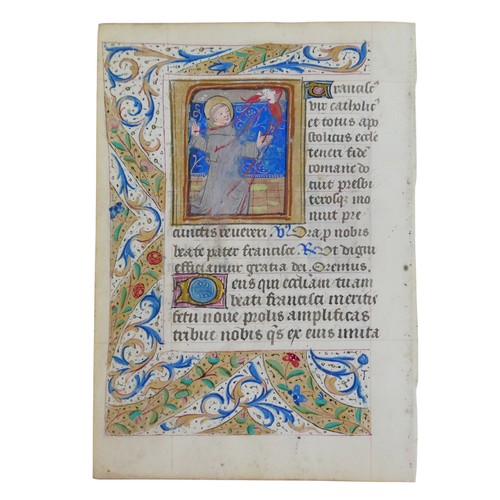 Francisc⁹
vir catholic⁹
et totus apo
stolicus eccle
teneri fidē
romane do
cuit presbi
terosq; mo
nuit pre
cunctis reuereri. V Ora p nobis
beate pater francisce. R Ut digni
efficiamur gratia dei. Oremus.
Deus qui eccliam tuam
beati francisci meritis
fetu noue prolis amplificas
tribue nobis q̄s ex eius imita